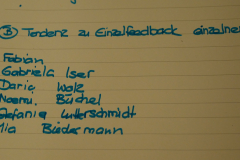 B Tendenz zu Einzelfeedback einzelne
Fabian
Gabriela Iser
Dario Walz
Noemi Büchel
Stefanie Lutterschmidt
Mia Biedermann